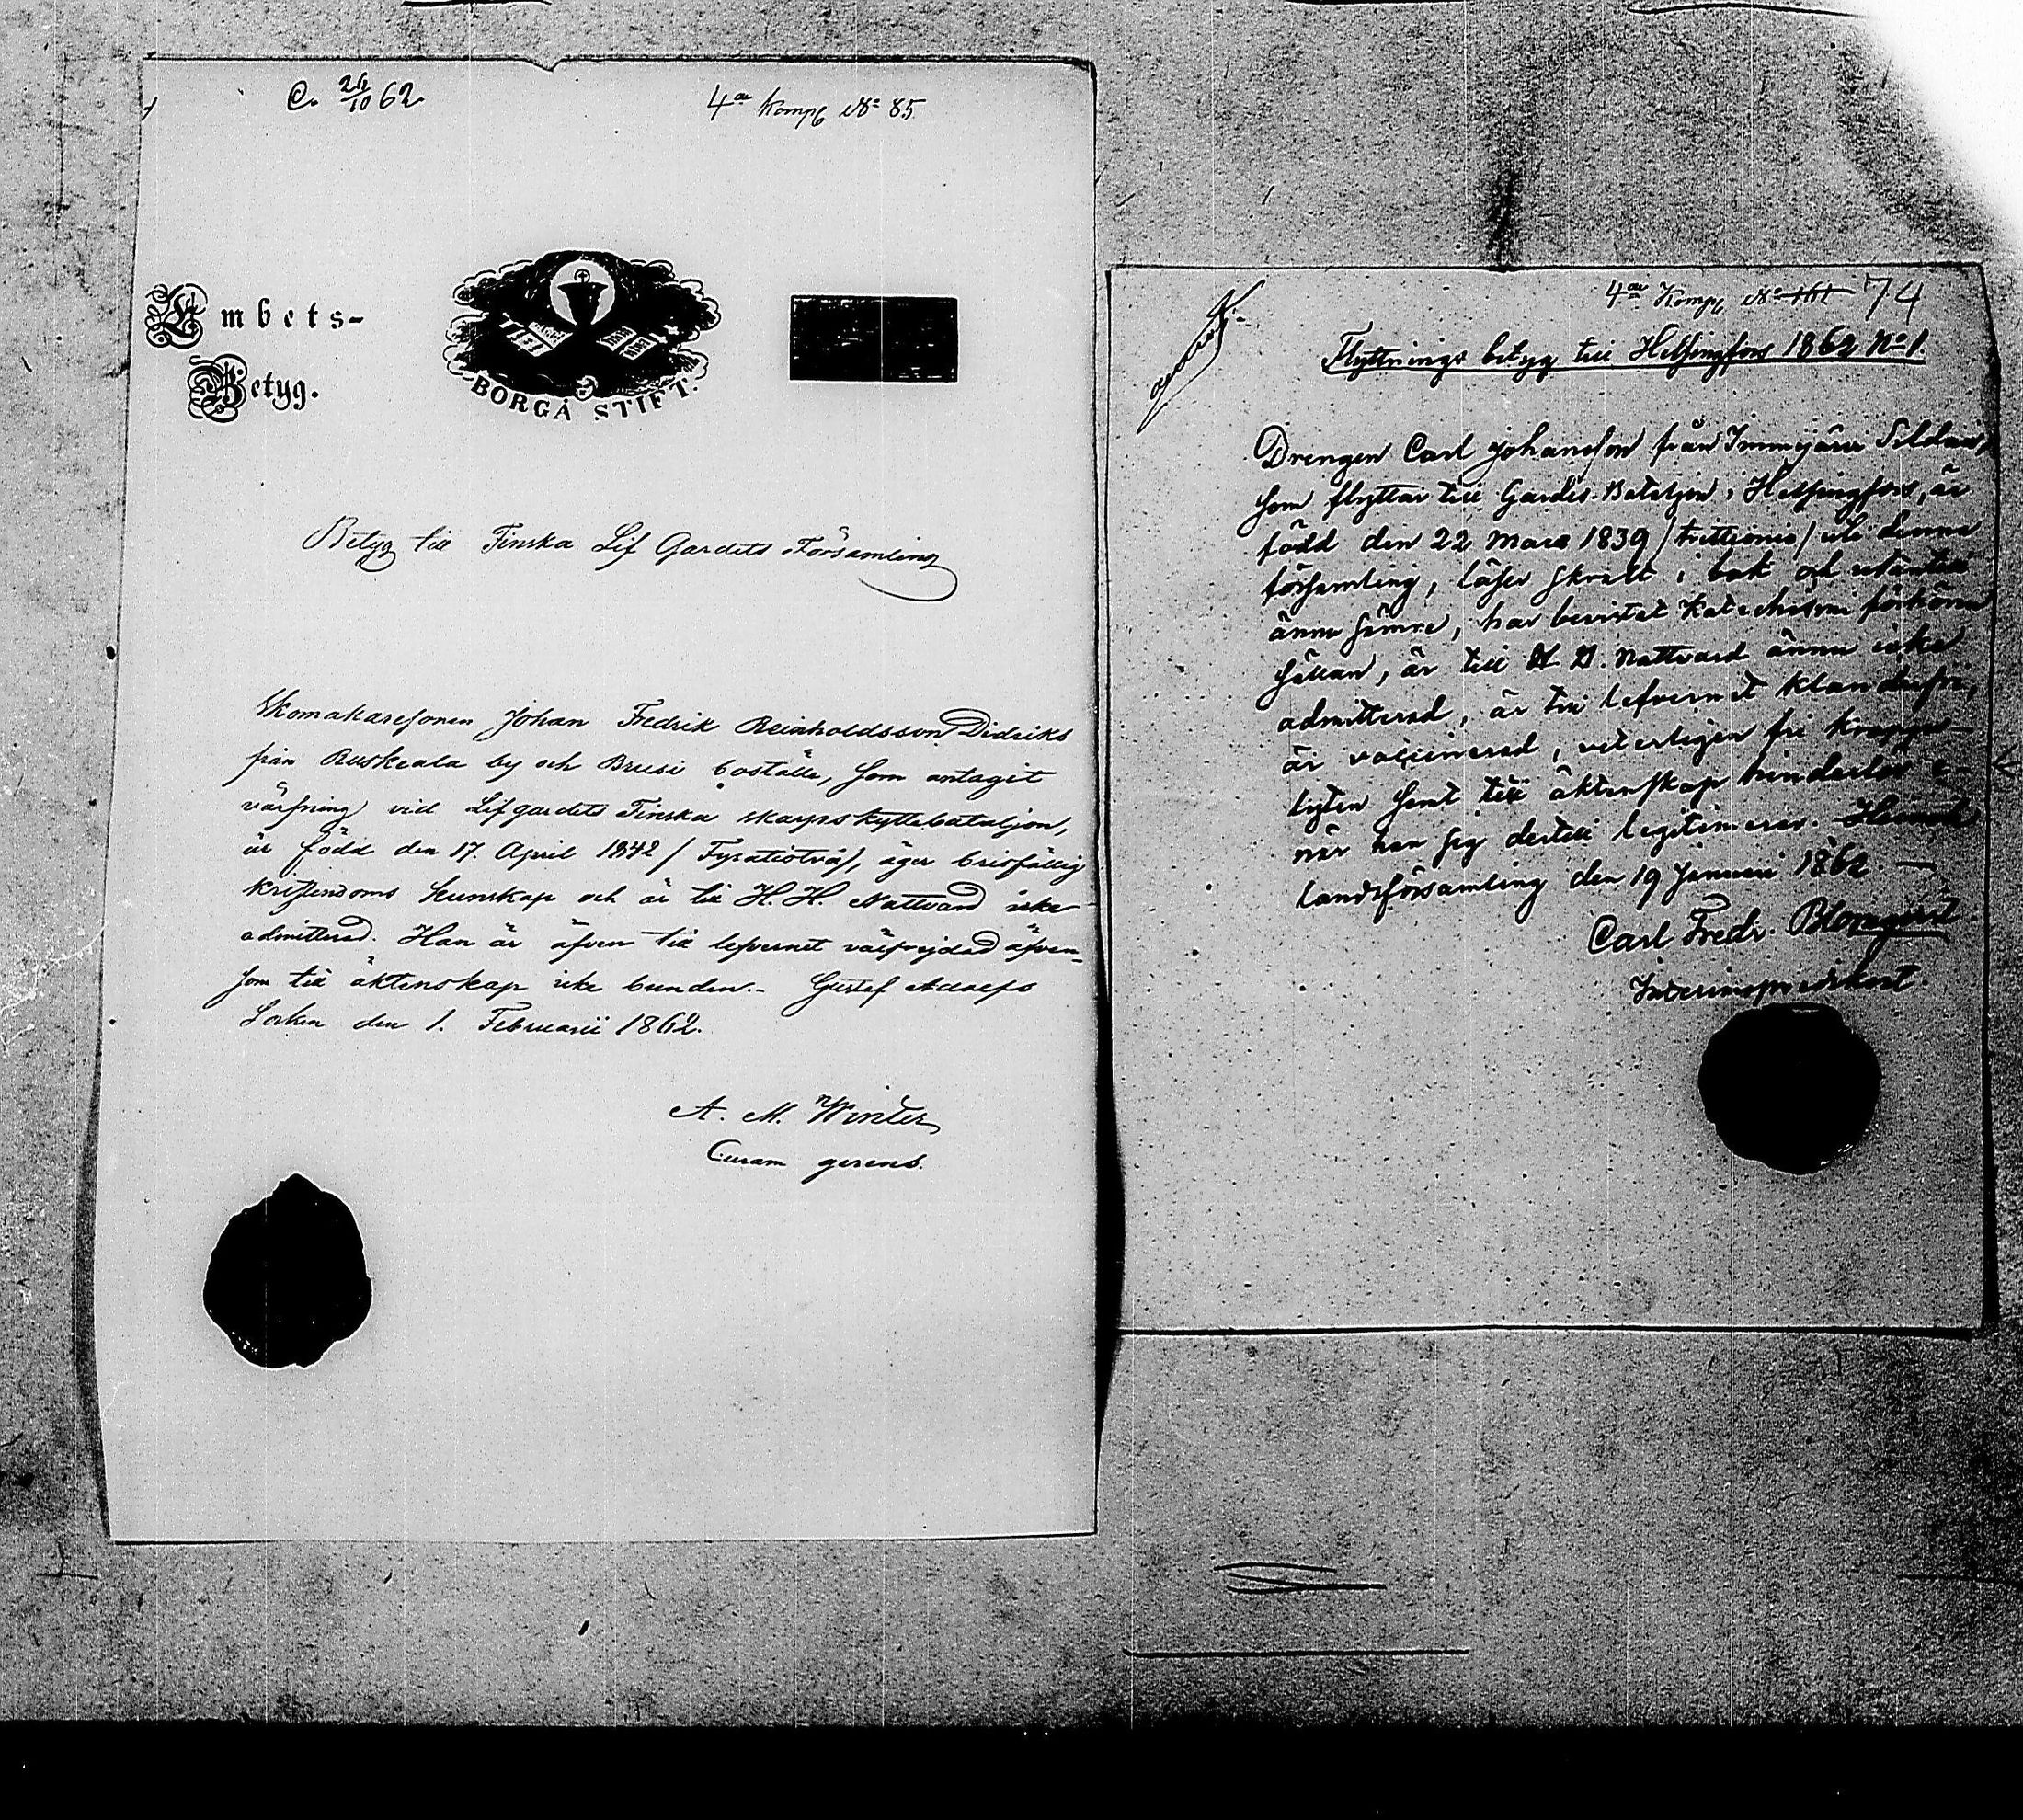 C. 26/10 62.
4de Komp № 85
Embets-
Betyg.
BORGÅ STIFT.
Betyg till Finska Lif Gardets Församling
Skomakaresonen Johan Fredrik Reinholdsson Didriks
från Ruskeala by och Brusi boställe, som antagit
värfning vid Lifgardets Finska skarpskyttebataljon,
är född den 17. April 1842 / Fyratiotvå /, äger bristfällig
kristendoms kunskap och är till H. H. Nattvard icke
admitterad. Han är äfven till lefvernet välfrejdad äfven-
som till äktenskap icke bunden. - Gustaf Adolfs
Socken den 1. Februarii 1862.
A. M. Winter
Curam gerens.
4de Komp № 161 74
Flyttnings betyg till Helsingfors 1862 No 1.
Drengen Carl Johansson från Immjärvi
som flyttar till Gardes-Bataljon i Helsingfors, är
född den 22 Mars 1839 / trettionio / uti denna
församling, läser skralt i bok och utantill
ännu sämre, har bevistat Katechismi förhören
sällan, är till H. H. Nattvard ännu icke
admitterad, är till lefvernet klanderfri,
är vaccinerad, veterligen fri kropps-
lyten samt till äktenskap hinderlös
när han sig dertill legitimerar. Heinola
landsförsamling den 19 Januari 1862.
Carl Fredr. Blomqvist
Interimspredikant.